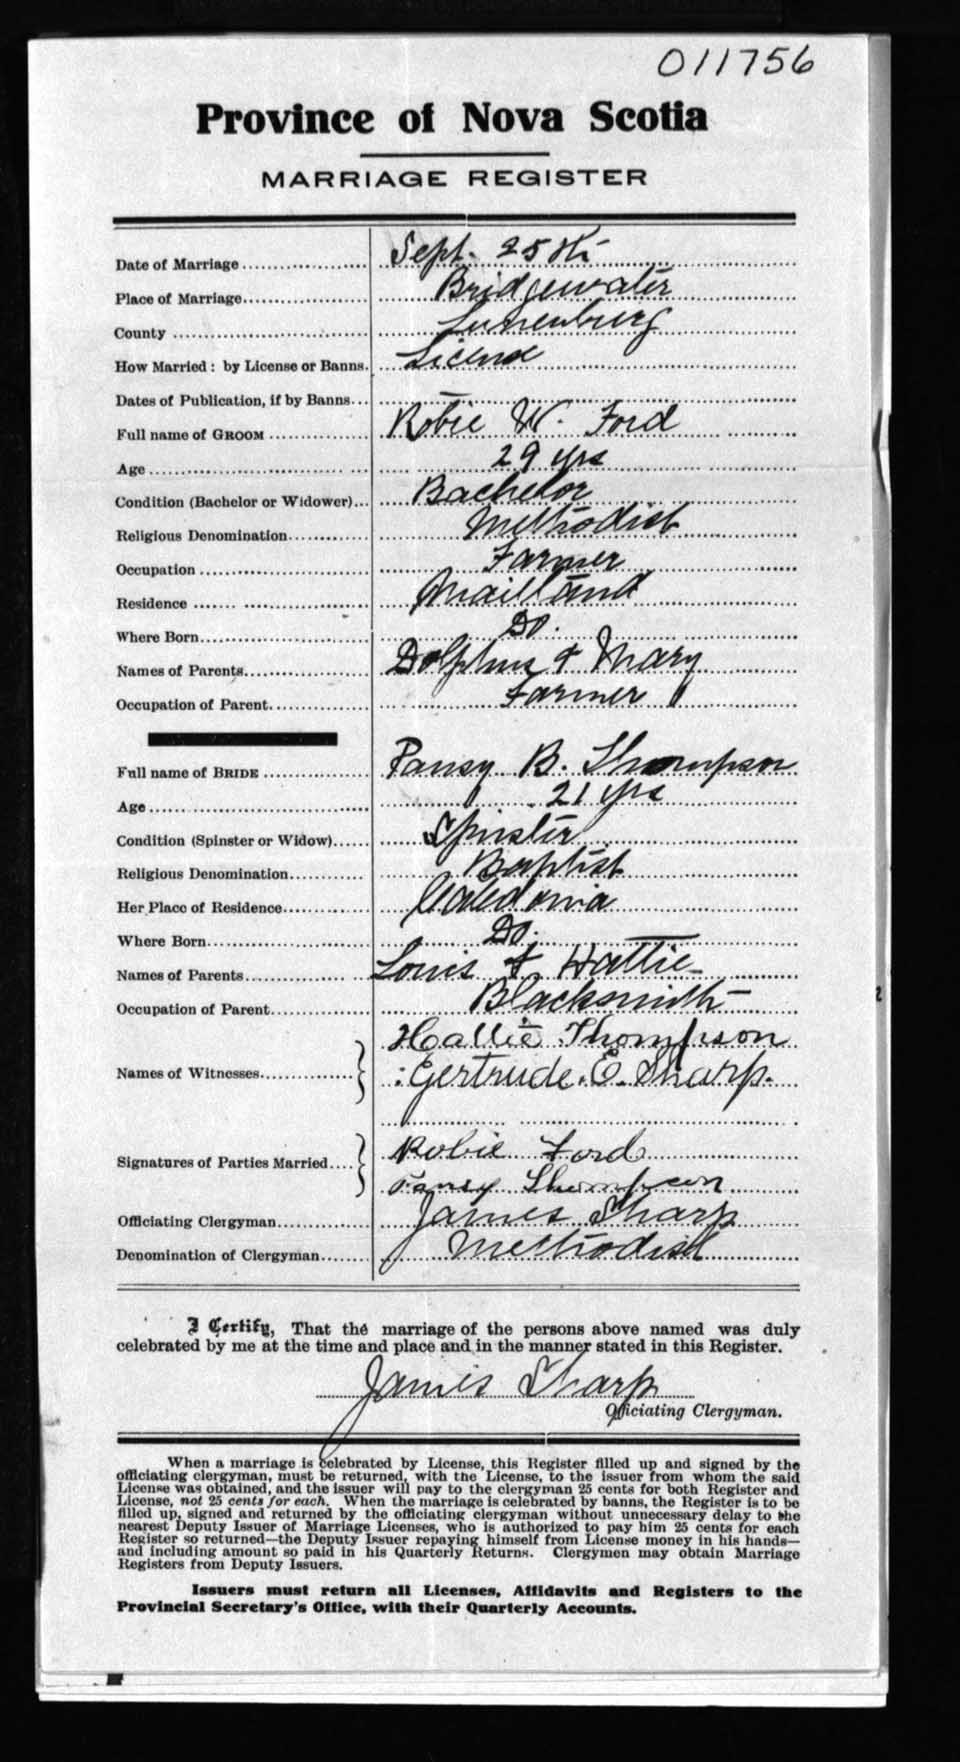 011756
Province of Nova Scotia
MARRIAGE REGISTER
Date of Marriage Sept. 25th
Place of Marriage Bridgewater
County Lunenburg
How Married: by License or Banns. License
Dates of Publication, if by Banns... —
Full name of GROOM Robie W. Ford
Age 29 yrs
Condition (Bachelor or Widower)... Bachelor
Religious Denomination Methodist
Occupation Farmer
Residence Maitland
Where Born Do.
Names of Parents Dolphus & Mary
Occupation of Parent Farmer
Full name of BRIDE Pansy B. Thompson
Age 21 yrs
Condition (Spinster or Widow) Spinster
Religious Denomination Baptist
Her Place of Residence Caledonia
Where Born Do.
Names of Parents Louis & Hattie
Occupation of Parent Blacksmith
Hallie Thompson
Names of Witnesses Gertrude. E. Sharp.
Signatures of Parties Married Robie Ford
Pansy Thompson
Officiating Clergyman James Sharp
Denomination of Clergyman Methodist
I Certify, That the marriage of the persons above named was duly
celebrated by me at the time and place and in the manner stated in this Register.
James Sharp
Officiating Clergyman.
When a marriage is celebrated by License, this Register filled up and signed by the
officiating clergyman, must be returned, with the License, to the issuer from whom the said
License was obtained, and the issuer will pay to the clergyman 25 cents for both Register and
License, not 25 cents for each. When the marriage is celebrated by banns, the Register is to be
filled up, signed and returned by the officiating clergyman without unnecessary delay to the
nearest Deputy Issuer of Marriage Licenses, who is authorized to pay him 25 cents for each
Register so returned—the Deputy Issuer repaying himself from License money in his hands—
and including amount so paid in his Quarterly Returns. Clergymen may obtain Marriage
Registers from Deputy Issuers.
Issuers must return all Licenses, Affidavits and Registers to the
Provincial Secretary's Office, with their Quarterly Accounts.